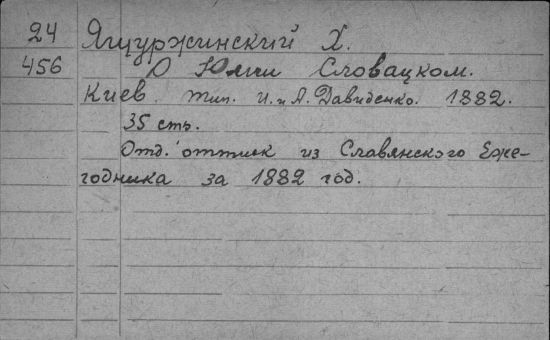 24 Ящуржинский Х.
456 О Юлии Словацком.
Киев. тип. И. и А. Давиденко. 1882.
35 стр.
Отд. оттиск из Славянского Еже-
годника за 1882 год.